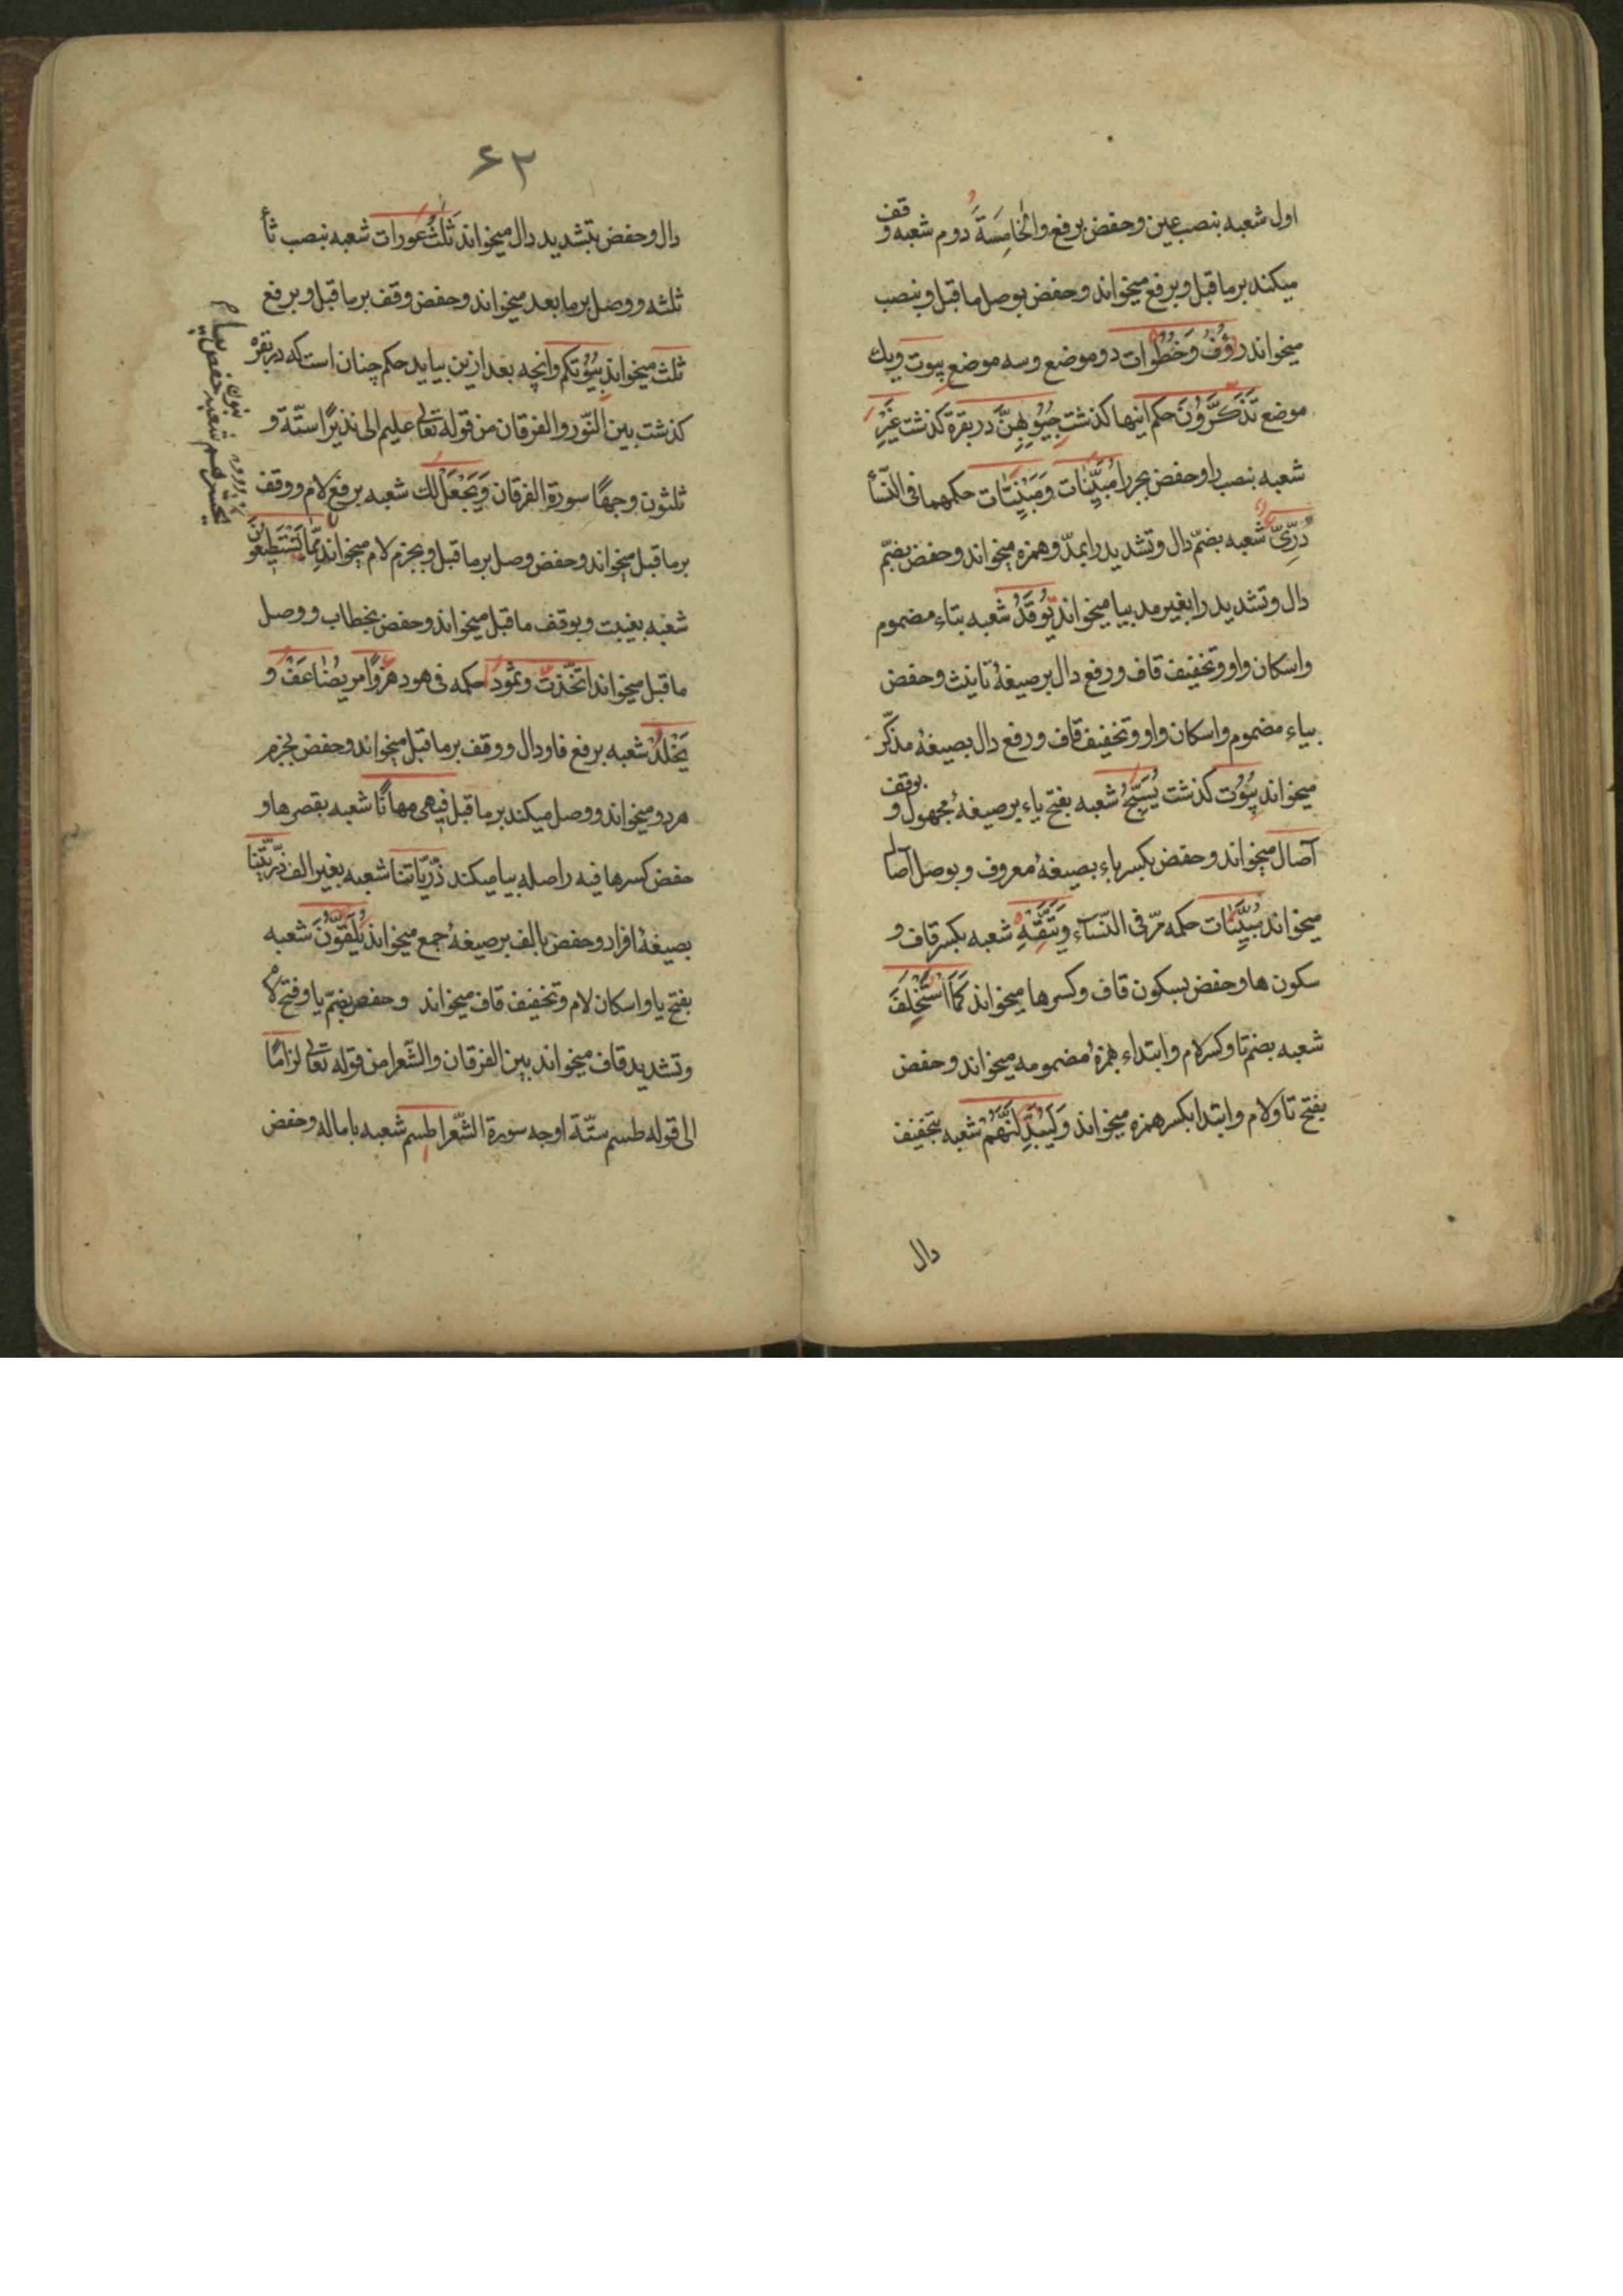 اول شعبه بنصب عین وحفص برفع والخامسة دوم شعبه وقف
میکند بر ماقبل و برفع میخواند وحفص بوصل ماقبل و بنصب
میخواند رؤف وخطوات دو موضع وسه موضع بیوت ویك
موضع تذكرون حکم اینها کذشت جیوبهن در بقرة کذشت غیر
شعبه بنصب را وحفص بجر را مبینات ومبینات حکمهما فی النسأ
دری شعبه بضم دال وتشدید را بمد وهمزه میخواند وحفص بضم
دال وتشدید را بغیر مد بیا میخواند توقد شعبه بتاء مضموم
واسکان واو وتخفیف قاف ورفع دال بر صیغهٔ تانیث وحفص
بیاء مضموم واسکان واو وتخفیف قاف ورفع دال بصیغهٔ مذکر
میخواند بیوت کذشت یسبح شعبه بفتح باء بر صیغهٔ مجهول و بوقف
آصال میخواند وحفص بکسر باء بصیغهٔ معروف و بوصل آصال
میخواند مبینات حکمه مر فی النسآء ویتقه شعبه بکسر قاف و
سکون ها وحفص بسکون قاف وکسر ها میخواند کما استخلف
شعبه بضم تا وکسر لام وابتداء بهمزهٔ مضمومه میخواند وحفص
بفتح تا ولام وابتدا بکسر همزه میخواند ولیبدلنهم شعبه بتخفیف
دال
۶۳
دال وحفص بتشدید دال میخواند ثلث عورات شعبه بنصب ثأ
ثلثه ووصل بر ما بعد میخواند وحفص وقف بر ماقبل و برفع
ثلث میخواند بیوتکم وانچه بعد ازین بیاید حکم چنان است که در بقره
کذشت بین النور والفرقان من قوله تعالی علیم الی نذیرا ستة و
ثلثون وجها سورة الفرقان ویجعل لك شعبه برفع لام ووقف
بر ماقبل میخواند وحفص وصل بر ماقبل و بجزم لام میخواند فما تستطیعون
شعبه بغیبت و بوقف ماقبل میخواند وحفص بخطاب ووصل
ماقبل میخواند اتخذت وثمودا حکمه فی هود هزوا مر یضاعف و
یخلد شعبه برفع فا ودال ووقف بر ماقبل میخواند وحفص بجزم
هر دو میخواند ووصل میکند بر ماقبل فیهی مهانا شعبه بقصر ها و
حفص کسر ها فیه را صله بیا میکند ذریاتنا شعبه بغیر الف ذریتنا
بصیغهٔ افراد وحفص بالف بر صیغهٔ جمع میخواند یلقون شعبه
بفتح یا واسکان لام وتخفیف قاف میخواند وحفص بضم یا وفتح لام
وتشدید قاف میخواند بین الفرقان والشعرا من قوله تعالی لزاما
الی قوله طسم ستة اوجه سورة الشعرا طسم شعبه باماله وحفص
یحشرهم شعبه بنون حفص بیا